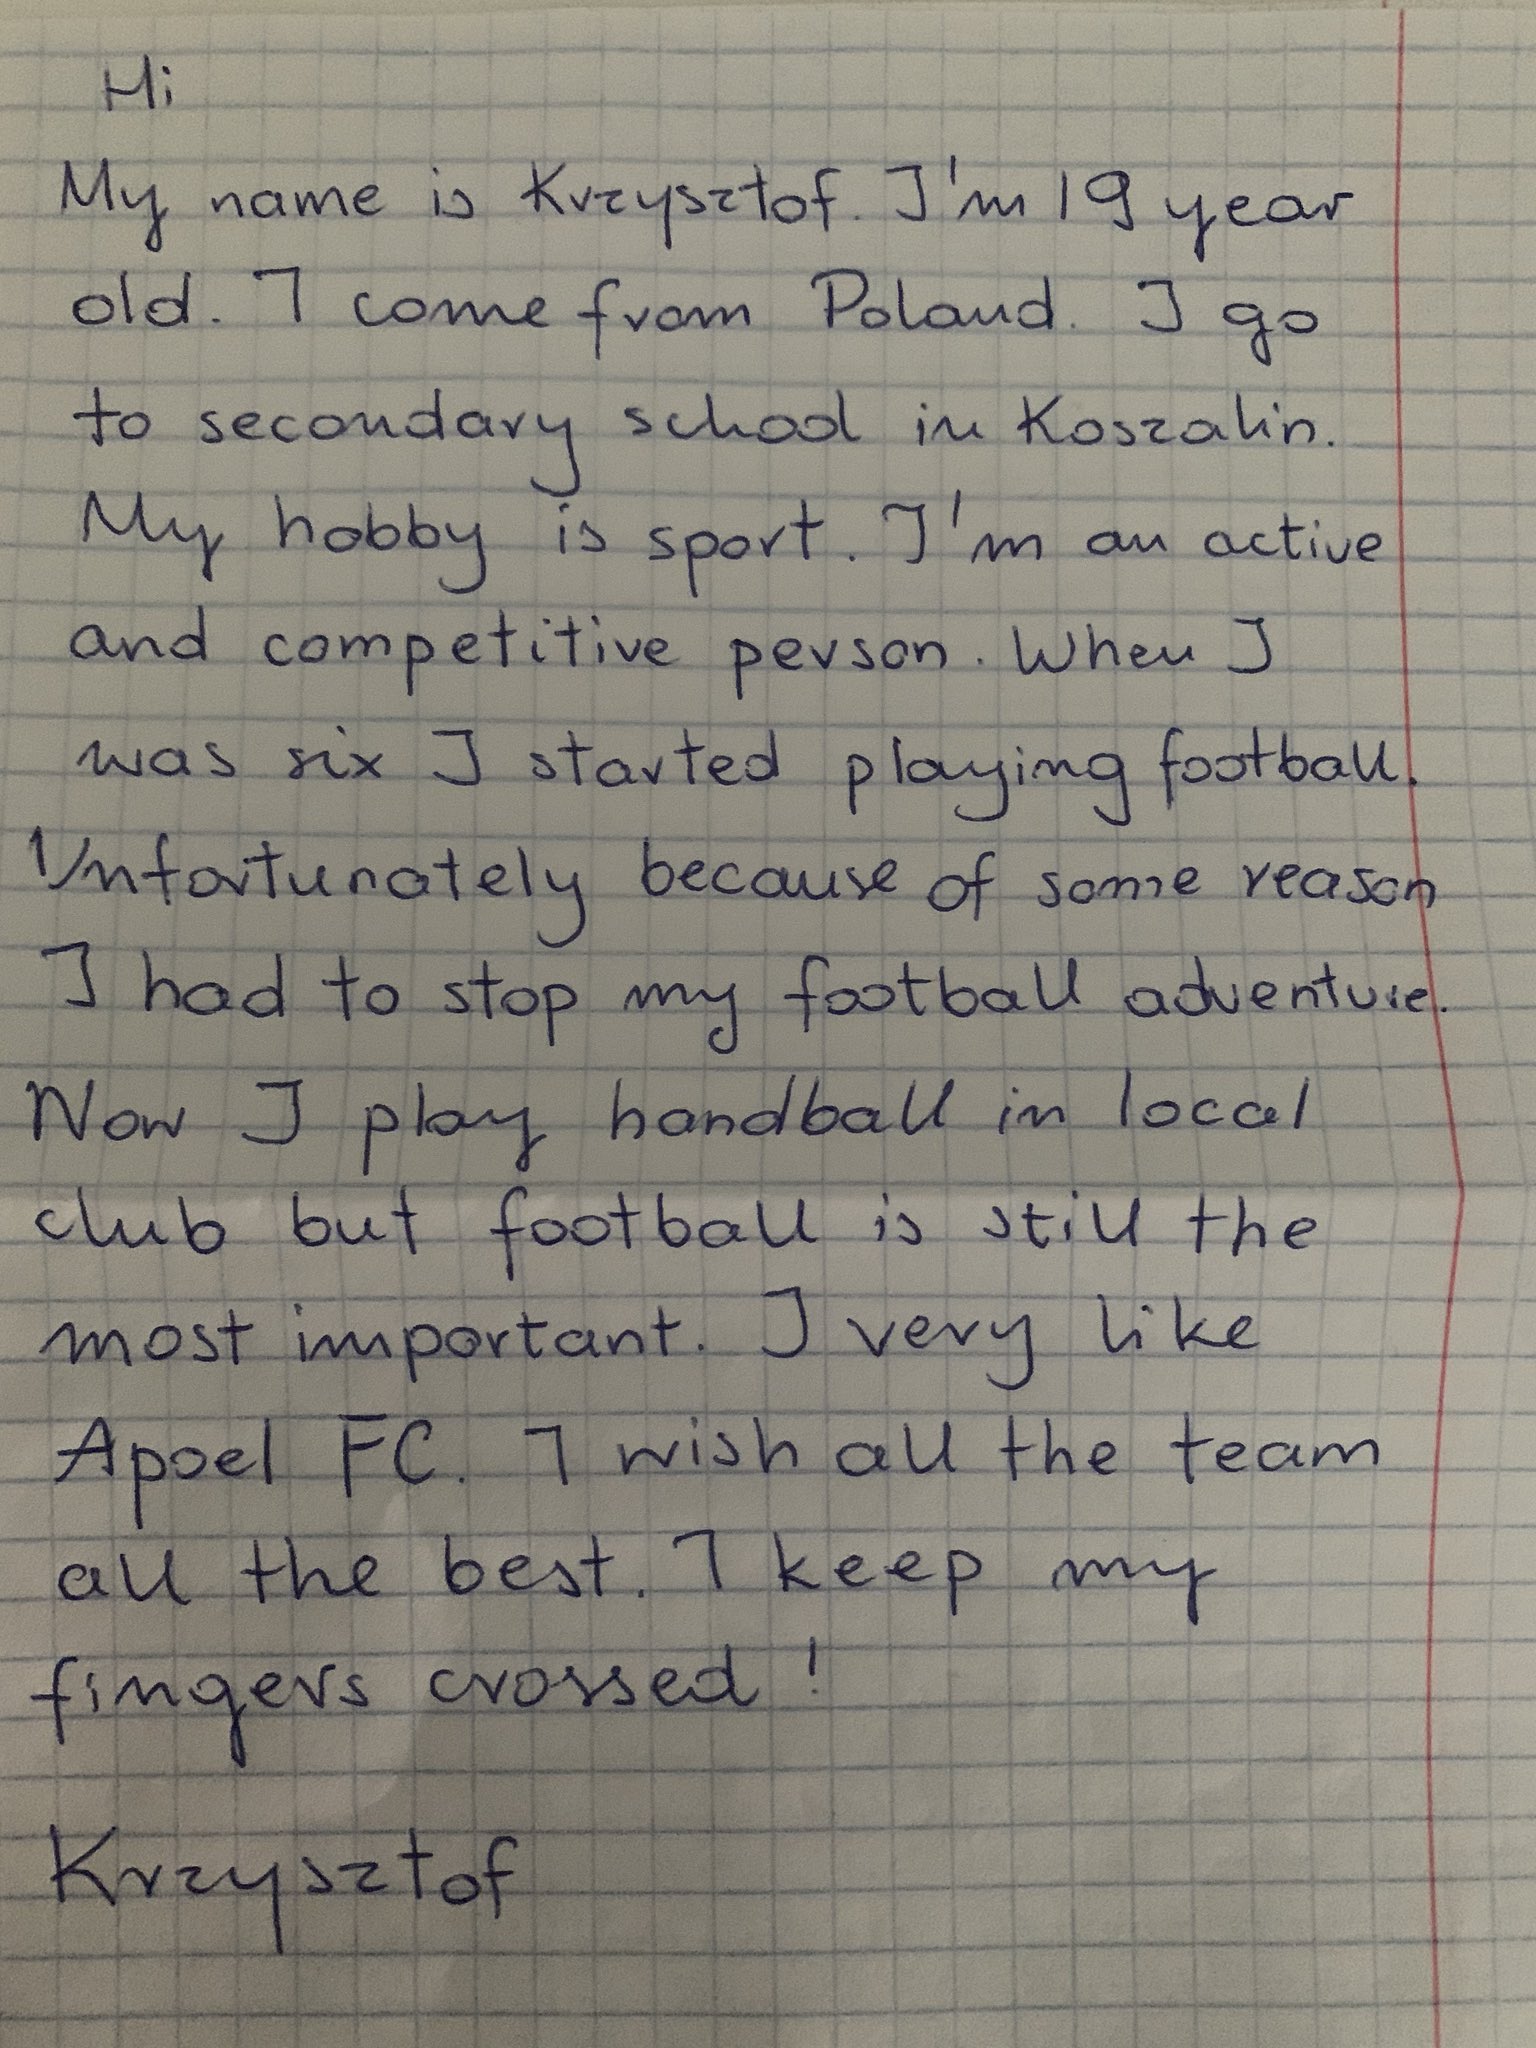 Hi
My name is Krzysztof. I'm 19 year
old. I come from Poland. I go
to secondary school in Koszalin.
My hobby is sport. I'm an active
and competitive person. When I
was six I started playing football.
Unfortunately because of some reason
I had to stop my football adventure.
Now I play handball in local
club but football is still the
most important. I very like
Apoel FC. I wish all the team
all the best. I keep my
fingers crossed!
Krzysztof